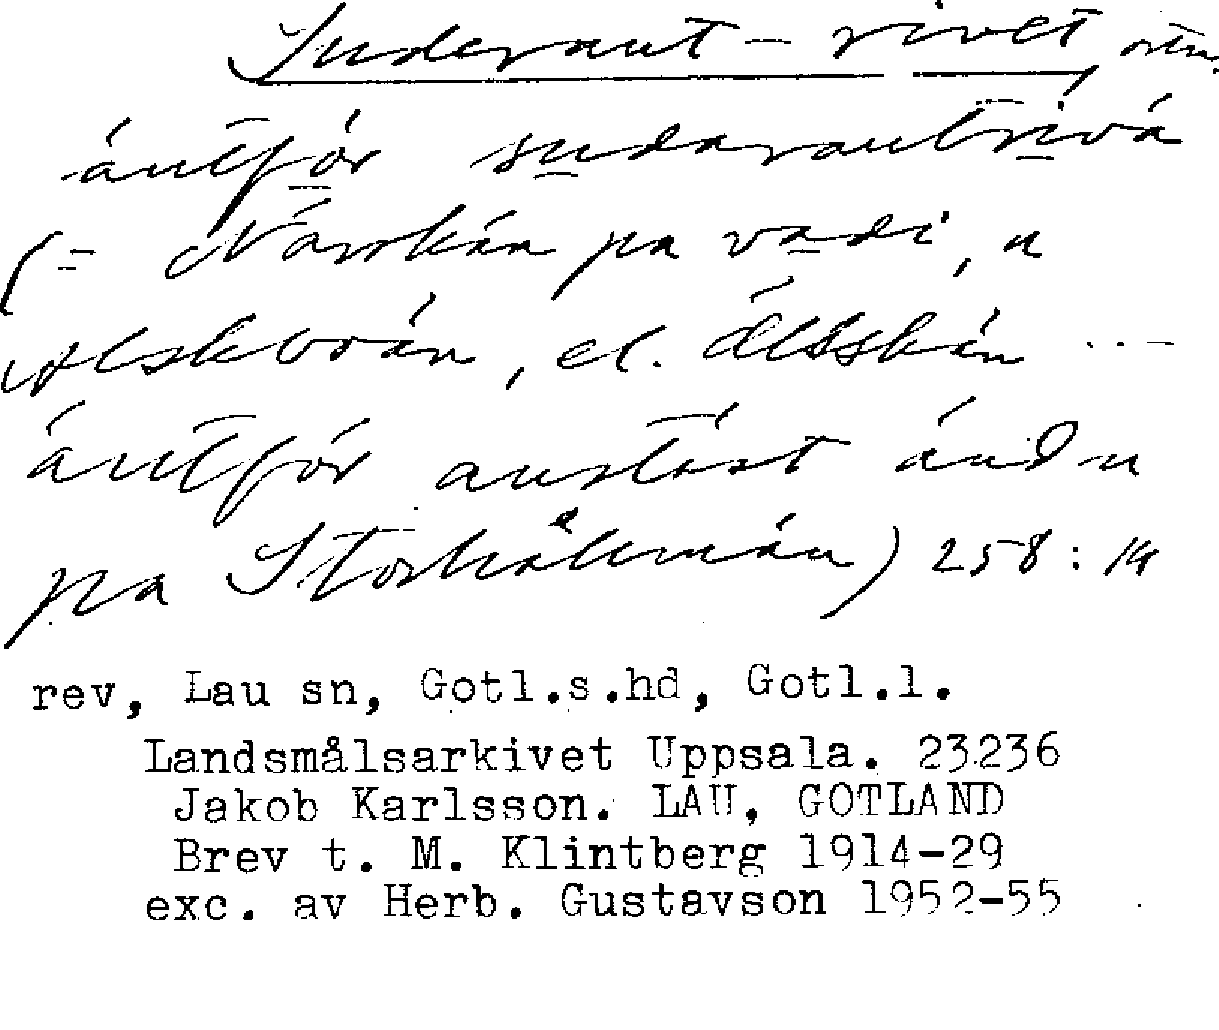 Suderaut-rivet, ortn.
áutfór sudarautrivá
(= Nárrkán pa vadi, u
Alskvoán, el. Álsskán ...
áutfór austást ándu
pa Storholmán) 258:14
rev, Lau sn, Gotl.s.hd, Gotl.l.
Landsmålsarkivet Uppsala. 23236
Jakob Karlsson. LAU, GOTLAND
Brev t. M. Klintberg 1914-29
exc. av Herb. Gustavson 1952-55